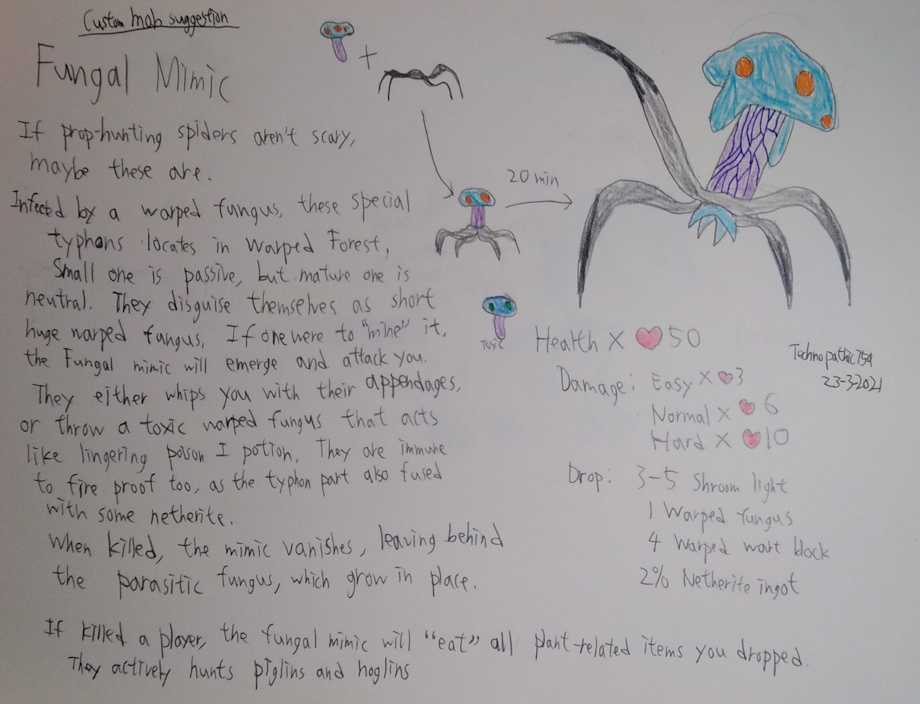 Custom mob suggestion
Fungal Mimic
If prop-hunting spiders aren't scary,
maybe these are.
Infected by a warped fungus, these special
typhons locates in Warped Forest.
Small one is passive, but mature one is
neutral. They disguise themselves as short
huge warped fungus. If one were to "mine" it,
the Fungal mimic will emerge and attack you.
They either whips you with their appendages,
or throw a toxic warped fungus that acts
like lingering poison I potion. They are immune
to fire proof too, as the typhon part also fused
with some netherite.
When killed, the mimic vanishes, leaving behind
the parasitic fungus, which grow in place.
If killed a player, the fungal mimic will "eat" all plant-related items you dropped.
They actively hunts piglins and hoglins
+
20 min
Toxic
Health X ❤ 50
Damage: Easy X ❤ 3
Normal X ❤ 6
Hard X ❤ 10
Drop: 3-5 Shroom light
1 Warped fungus
4 Warped wart block
2% Netherite ingot
Technopathic759
23-3-2021